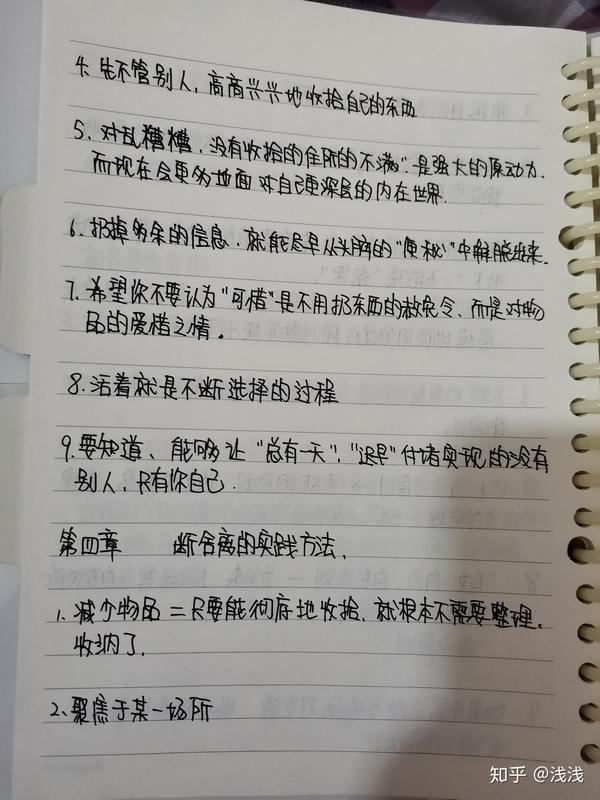 4. 先不管别人,高高兴兴地收拾自己的东西
5. 对乱糟糟,没有收拾的住所的不满"是强大的原动力.
而现在会更多地面对自己更深层的内在世界.
6. 扔掉多余的信息,就能尽早从头脑的"便秘"中解脱出来.
7. 希望你不要认为"可惜"是不用扔东西的赦免令、而是对物
品的爱惜之情。
8. 活着就是不断选择的过程
9. 要知道、能够让"总有一天"、"迟早"付诸实现的没有
别人,只有你自己.
第四章 断舍离的实践方法.
1. 减少物品=只要能彻底地收拾.就根本不需要整理.
收纳了.
2. 聚焦于某一场所
知乎 @浅浅